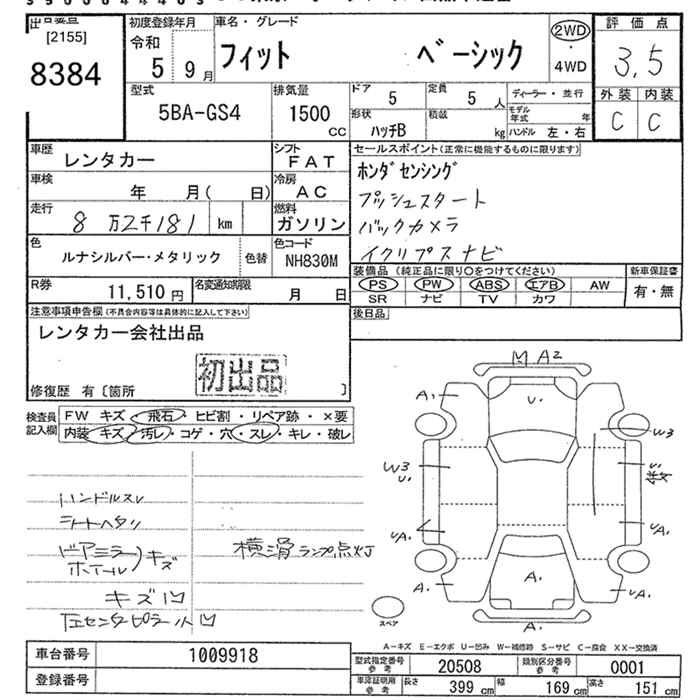 [2155]
8384
初度登録年月
令和
5 9月
車名・グレード
フィット ベーシック
2WD
4WD
評価点
3.5
外装 内装
C C
型式
5BA-GS4
排気量
1500
CC
ドア
5
定員
5人
形状
ハッチB
積載
kg
ディーラー・並行
モデル年式 年
ハンドル 左・右
車歴
レンタカー
シフト
FAT
車検
年 月( 日)
冷房
AC
走行
8万2千181 km
燃料
ガソリン
色
ルナシルバー・メタリック
色替
色コード
NH830M
R券
11,510円
名変通知期限
月 日
セールスポイント(正常に機能するものに限ります)
ホンダセンシング
プッシュスタート
バックカメラ
イクリプスナビ
装備品(純正品に限り○をつけてください)
PS PW ABS エアB AW
SR ナビ TV カワ
新車保証書
有・無
後日品
注意事項申告欄(不具合内容等は具体的に記入して下さい)
レンタカー会社出品
初出品
修復歴 有〔箇所 〕
検査員記入欄
FW キズ・飛石・ヒビ割・リペア跡・×要
内装 キズ・汚レ・コゲ・穴・スレ・キレ・破レ
ハンドルスレ
シートヘタリ
ドアミラー
ホイール)キズ
キズ凹
左センタピラー凹
横滑ランプ点灯
M A2
A.
U.
W3
W3
U.
U.
UA.
UA.
A.
A.
UA.
A.
スペア
A-キズ E-エクボ U-凹み W-補修跡 S-サビ C-腐食 XX-交換済
車台番号
1009918
登録番号
型式指定番号
参考
20508
類別区分番号
参考
0001
車庫証明用
参考
長さ
399cm
幅
169cm
高さ
151cm